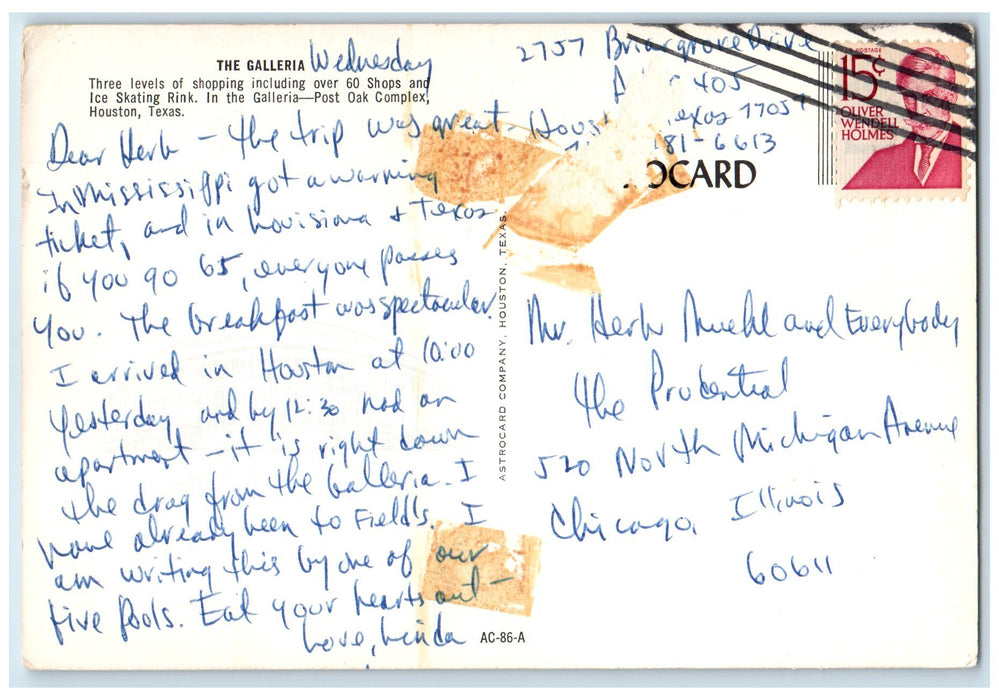 THE GALLERIA
Three levels of shopping including over 60 Shops and
Ice Skating Rink. In the Galleria—Post Oak Complex,
Houston, Texas.
Wednesday
Dear Herb - the trip was great.
In Mississippi got a warning
ticket, and in Louisiana & Texas
if you go 65, everyone passes
you. The breakfast was spectacular.
I arrived in Houston at 10:00
yesterday and by 12:30 had an
apartment - it is right down
the drag from the Galleria. I
have already been to Field's. I
am writing this by one of our
five pools. Eat your hearts out -
Love, Linda
2757 Briargrove Drive
405
Texas 77057
81-6613
OCARD
POSTAGE
15¢
OLIVER
WENDELL
HOLMES
ASTROCARD COMPANY, HOUSTON, TEXAS.
Mr. Herb Muehl and Everybody
The Prudential
520 North Michigan Avenue
Chicago, Illinois
60611
AC-86-A